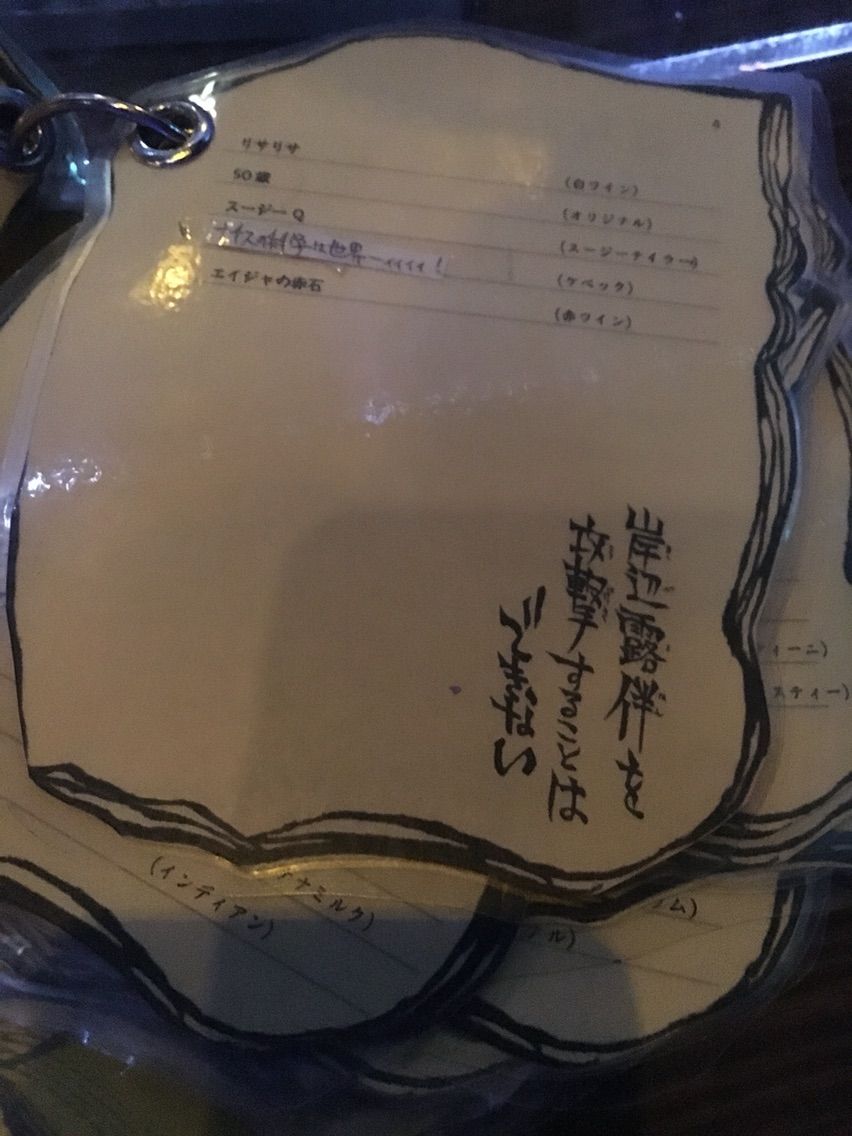 4
リサリサ (白ワイン)
50歳 (オリジナル)
スージーQ (スージーテイラー)
ナチスの科学は世界一ィィィィ! (ケベック)
エイジャの赤石 (赤ワイン)
岸辺露伴を
攻撃することは
できない
ィーニ)
スティー)
ナミルク)
(インディアン)
ム)
ル)